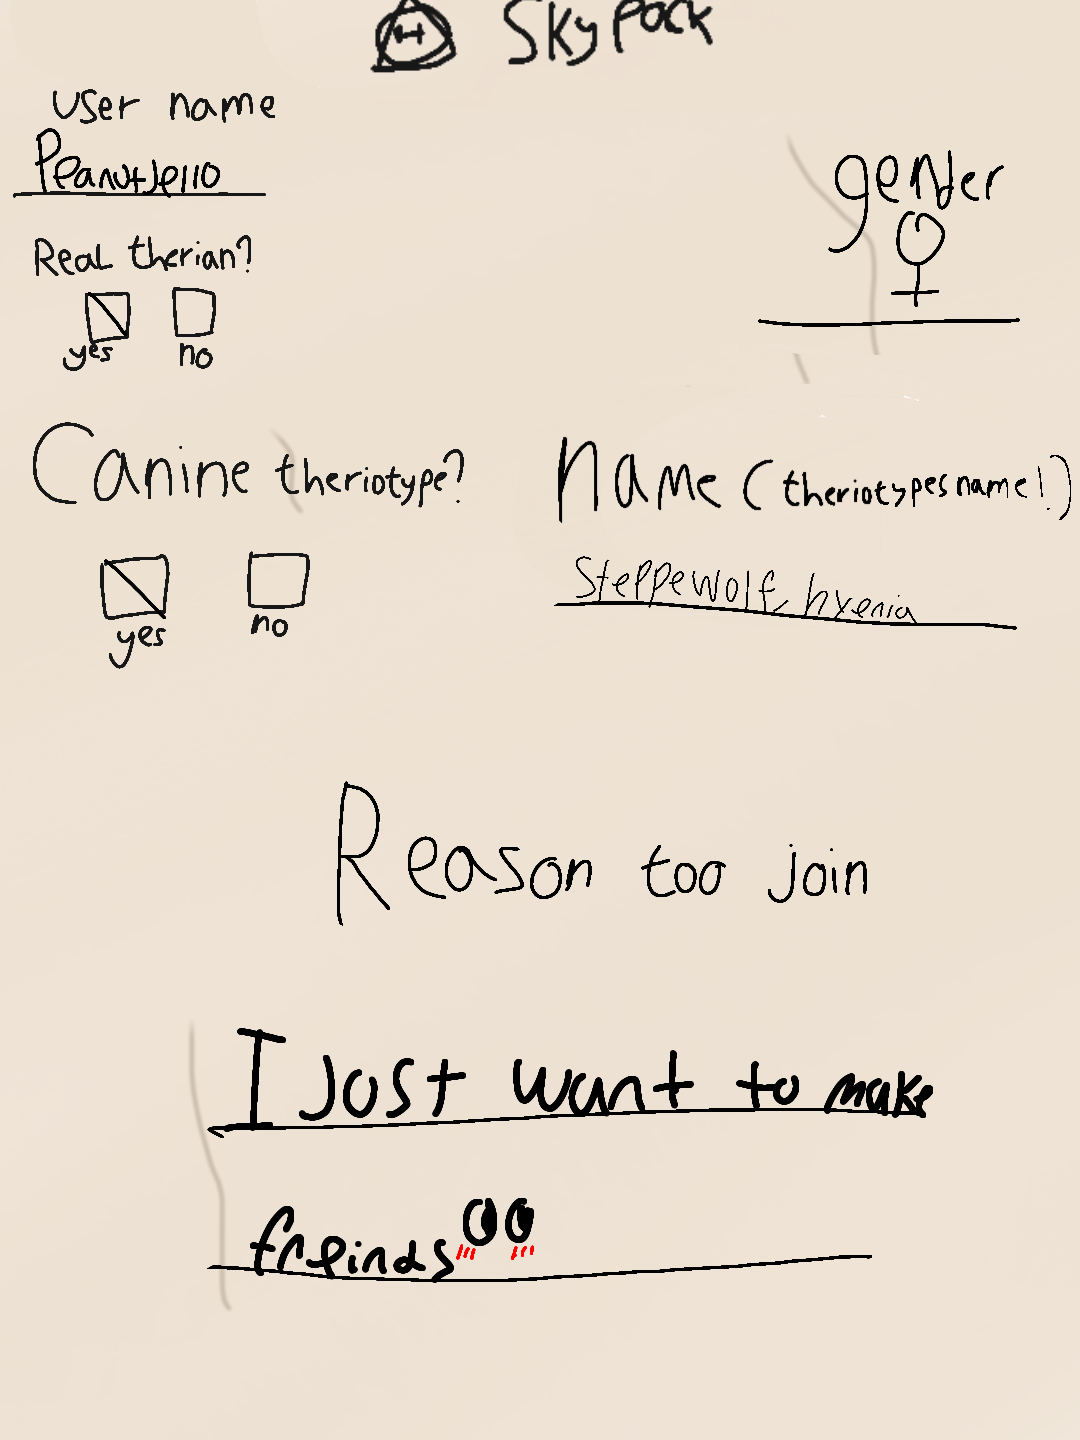 Sky Pack
User name
PeanutJello
gender
Real therian?
yes no
Canine theriotype?
yes no
Name (theriotypes name!)
Steppewolf, hyenia
Reason too join
I Just want to make
freinds